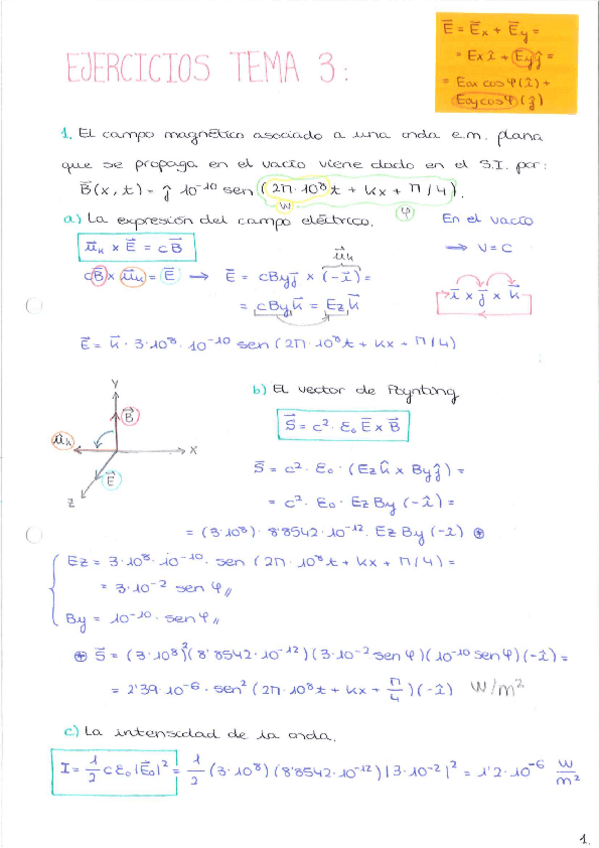 EJERCICIOS TEMA 3:
E⃗ = E⃗x + E⃗y =
= Ex î + Ey ĵ =
= Eox cos φ (î) +
Eoy cos φ (ĵ)
1. El campo magnético asociado a una onda e.m. plana
que se propaga en el vacío viene dado en el S.I. por:
B⃗(x, t) = ĵ 10⁻¹⁰ sen (2π·10⁸t + kx + π/4).
w
φ
a) La expresión del campo eléctrico.
En el vacío
→ v = c
u⃗k × E⃗ = cB⃗
u⃗k
cB⃗ × u⃗k = E⃗ → E⃗ = cBy j⃗ × (-i⃗) =
= cBy k⃗ = Ez k⃗
i⃗ × j⃗ × k⃗
E⃗ = k⃗ · 3·10⁸ · 10⁻¹⁰ sen (2π·10⁸t + kx + π/4)
Y
B⃗
u⃗k
X
E⃗
Z
b) El vector de Poynting
S⃗ = c² · ε₀ E⃗ × B⃗
S⃗ = c² · ε₀ · (Ez k̂ × By ĵ) =
= c² · ε₀ · Ez By (-î) =
= (3·10⁸) · 8'8542·10⁻¹² · Ez By (-î) ⊕
Ez = 3·10⁸ · 10⁻¹⁰ · sen (2π·10⁸t + kx + π/4) =
= 3·10⁻² sen φ //
By = 10⁻¹⁰ · sen φ //
⊕ S⃗ = (3·10⁸)²(8'8542·10⁻¹²)(3·10⁻² sen φ)(10⁻¹⁰ sen φ)(-î) =
= 2'39·10⁻⁶ · sen² (2π·10⁸t + kx + π/4)(-î) W/m²
c) La intensidad de la onda.
I = 1/2 cε₀|E⃗₀|² = 1/2 (3·10⁸)(8'8542·10⁻¹²)|3·10⁻²|² = 1'2·10⁻⁶ W/m²
1.